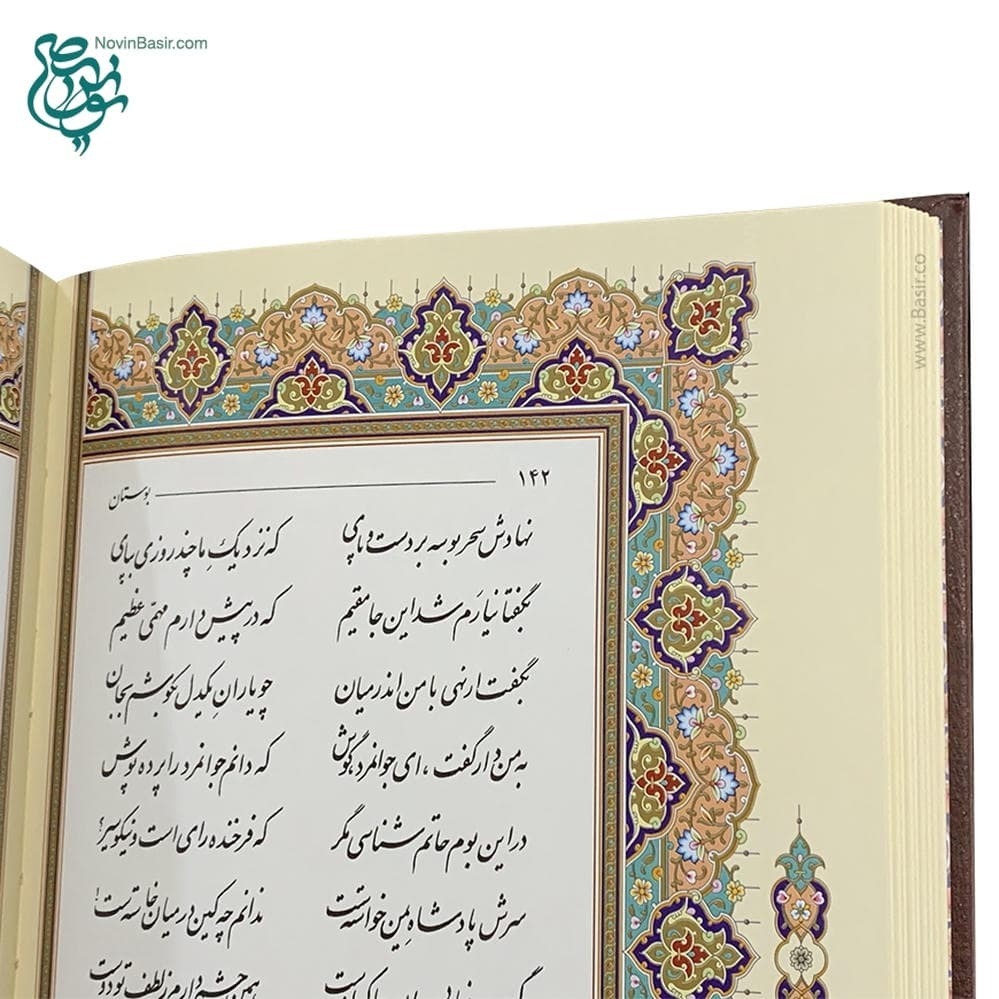 NovinBasir.com
نوین بصیر
www.Basir.co
۱۴۲ بوستان
نهادش سحر بوسه بر دست و پای که نزدیکِ ما چند روزی بپای
بگفتا نیارَم شد این جا مقیم که در پیش دارم مهمّی عظیم
بگفت ار نهی با من اندر میان چو یارانِ یکدل بکوشم بجان
به من دار گفت، ای جوانمرد، گوش که دانم جوانمرد را پرده پوش
در این بوم حاتم شناسی مگر که فرخنده رای است و نیکو سیر؟
سرش پادشاهِ یمن خواسته ست ندانم چه کین در میان خاسته ست!
چشم دارم ز لطف تو دوست